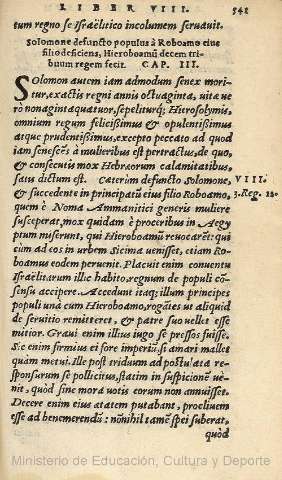 LIBER VIII. 541
eum regno se Israëlitico incolumem seruauit.
Solomone defuncto populus à Roboamo eius
filio deficiens, Hieroboamū decem tri-
buum regem fecit. CAP. III.
Solomon autem iam admodum senex mori-
tur, exactis regni annis octuaginta, uitæ ue-
rò nonagintaquatuor, sepelitúrq; Hierosolymis,
omnium regum felicissimus & opulentissimus
atque prudentissimus, excepto peccato ad quod
iam senescēs à mulieribus est pertractus, de quo,
& consecutis mox Hebræorum calamitatibus,
satis dictum est. Cæterùm defuncto solomone, VIII.
& succedente in principatū eius filio Roboamo, 3. Reg. 12.
quem è Noma Ammanitici generis muliere
susceperat, mox quidam è proceribus in Aegy
ptum miserunt, qui Hieroboamū reuocarēt: qui
cùm ad eos in urbem Sicima uenisset, etiam Ro-
boamus eodem peruenit. Placuit enim conuentu
Israëlitarum illic habito, regnum de populi cō-
sensu accipere. Accedunt itaq; illum principes
populi unà cum Hieroboamo, rogātes ut aliquid
de seruitio remitteret, & patre suo uellet esse
mitior. Graui enim illius iugo se pressos fuisse.
Sic enim firmius ei fore imperiū, si amari mallet
quàm metui. Ille post triduum ad postulata res-
responsurum se pollicitus, statim in suspicionē ue-
nit, quòd sine mora uotis eorum non annuisset.
Decere enim eius ætatem putabant, procliuem
esse ad benemerendū: nonihil tamē spei suberat,
quòd
Ministerio de Educación, Cultura y Deporte